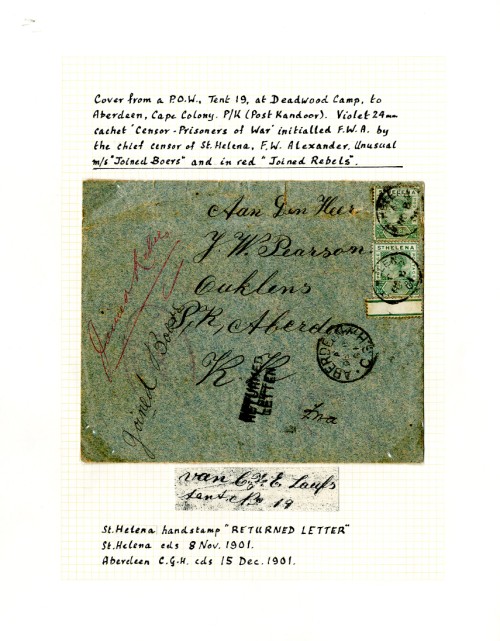 Cover from a P.O.W., Tent 19, at Deadwood Camp, to
Aberdeen, Cape Colony. P/K (Post Kandoor). Violet 24mm
cachet "Censor - Prisoners of War" initialled F.W.A. by
the chief censor of St. Helena, F.W. Alexander. Unusual
m/s "Joined Boers" and in red "Joined Rebels".
Aan Den Heer
J W. Pearson
Ouklens
P/K, Aberdeen
K K
Joined Rebels
Joined Boers
RETURNED
LETTER
ST HELENA
ABERDEEN
van C. F. E Laufs
tent No 19
St. Helena handstamp "RETURNED LETTER"
St. Helena cds 8 Nov. 1901.
Aberdeen C.G.H. cds 15 Dec. 1901.